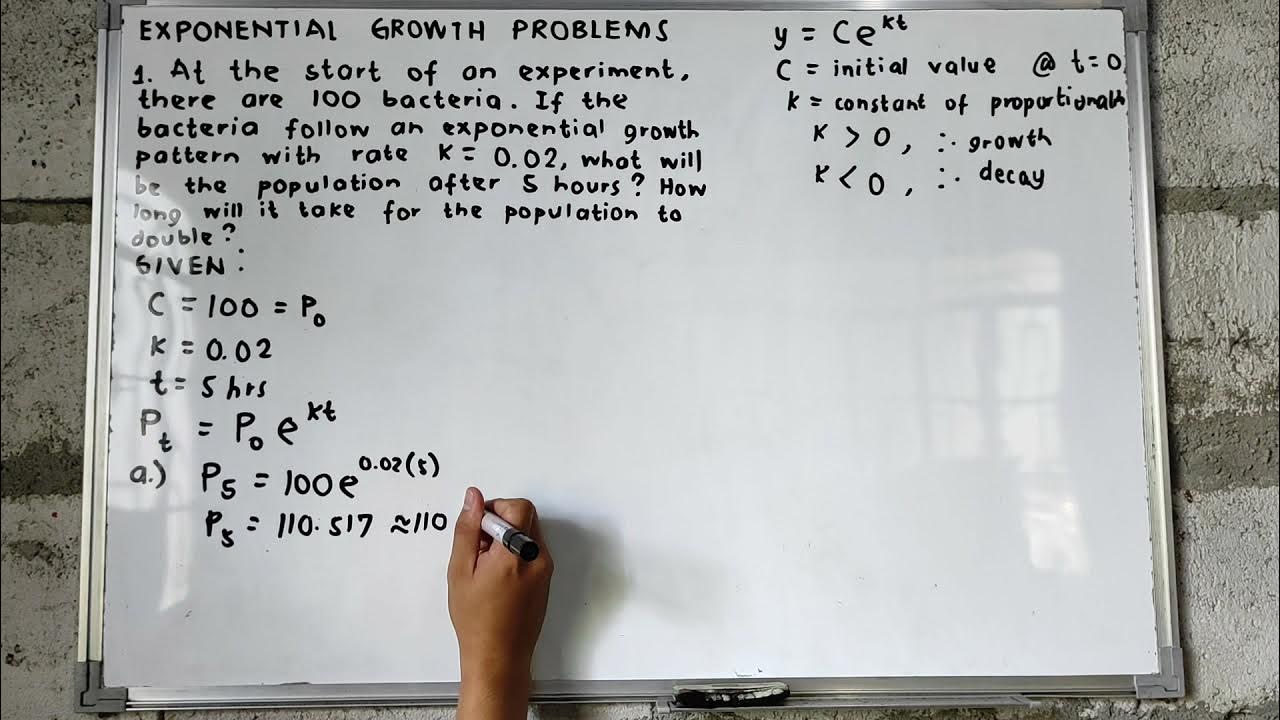 EXPONENTIAL GROWTH PROBLEMS
1. At the start of an experiment,
there are 100 bacteria. If the
bacteria follow an exponential growth
pattern with rate K = 0.02, what will
be the population after 5 hours? How
long will it take for the population to
double?
GIVEN:
C = 100 = P₀
K = 0.02
t = 5 hrs
Pₜ = P₀ e^kt
a.) P₅ = 100e^0.02(5)
P₅ = 110.517 ≈110
y = Ce^kt
C = initial value @ t=0
K = constant of
K > 0, ∴ growth
K < 0, ∴ decay